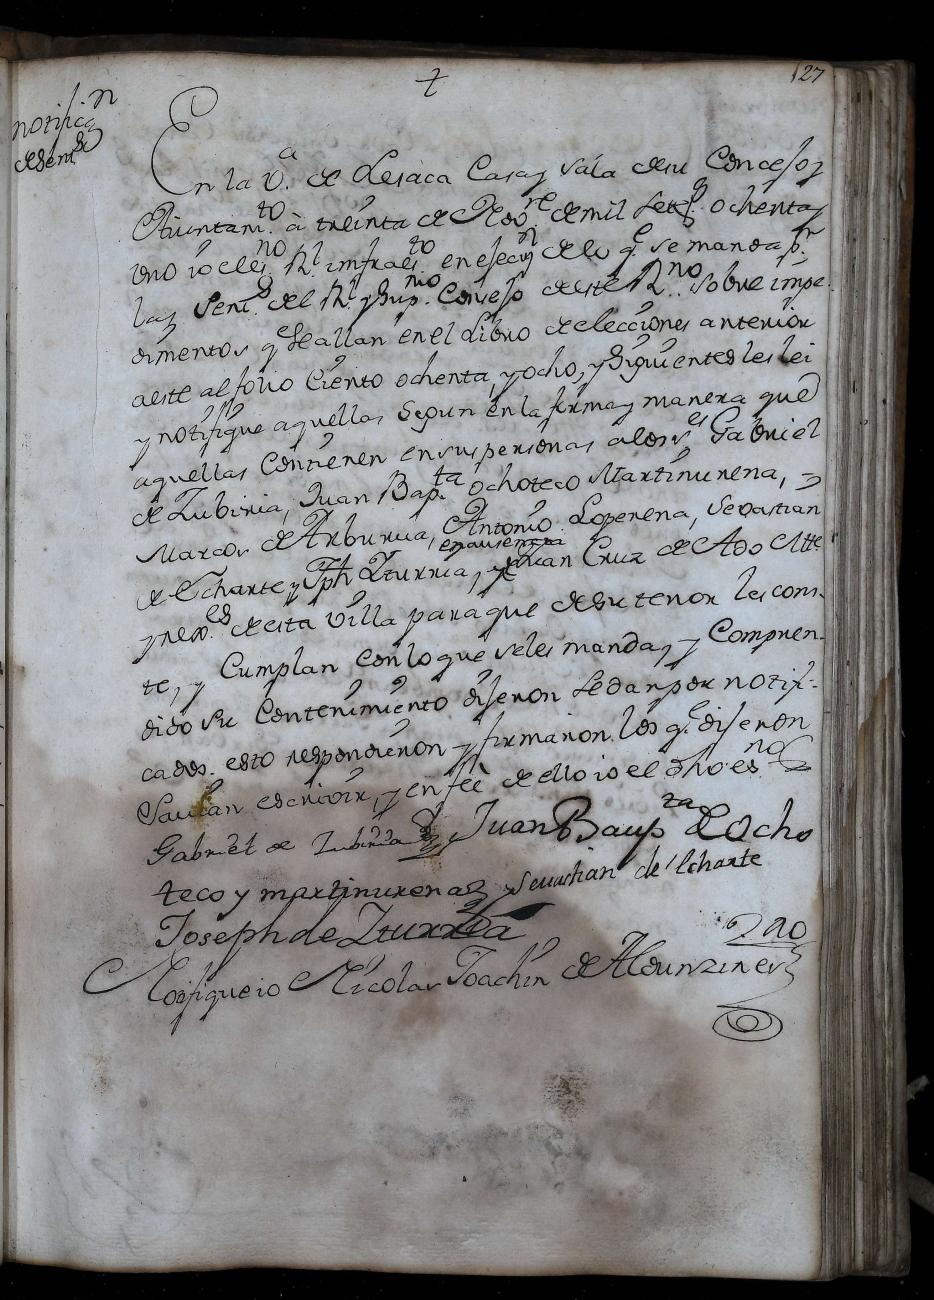 127
notificⁿ
de Sentᵃ
En la Vᵃ. de Lesaca Casa y Sala de su Concejo y
Aiuntamᵗᵒ. à treinta de Nobʳᵉ de mil Setᵉˢ. ochenta y
uno io el esⁿᵒ. Rˡ. infraesᵗᵒ. en ejecⁿ de lo qᵉ se manda pʳ
las Sentˢ. del Rˡ. y Supʳᵐᵒ. Consejo de este Rⁿᵒ. sobre impe-
dimentos qᵉ se allan en el Libro de elecciones anterior
a este al folio Ciento ochenta, y ocho, y Siguientes les lei
y notifique aquellas Segun en la forma y manera que
aquellas Contienen en sus personas a los Sʳᵉˢ Gabriel
de Zubiria, Juan Bapᵗᵃ. ochoteco Martinurena,
Marcos de Arburua, Antonio Loperena, Sevastian
de Echarte, y Jph Yturria, y Juan Cruz de Ado Altte
y rexᵉˢ. de esta Villa para que de su tenor les cons-
te, y Cumplan Con lo que se les manda, y Compren-
dido su Contenimiento dijeron se dan por notifi-
cados. esto respondieron y firmaron los qᵉ. dijeron
Savian escrivir, y en feè de ello io el dho esⁿᵒ
Gabriel de Zubiria Juan Baupᵗᵃ de Ocho
teco y martinurena Sevastian de Echarte
Joseph de Yturria
Notifique io Nicolas Joachin de Aldunzin esⁿᵒ